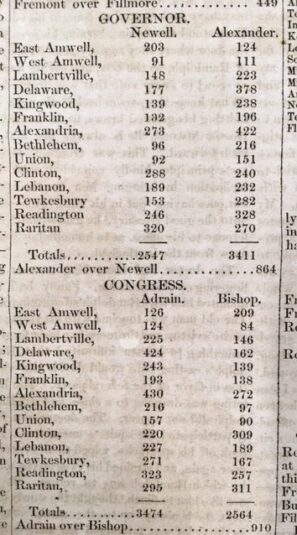 Fremont over Fillmore........ 449
GOVERNOR.
Newell. Alexander.
East Amwell, 203 124
West Amwell, 91 111
Lambertville, 148 223
Delaware, 177 378
Kingwood, 139 238
Franklin, 132 196
Alexandria, 273 422
Bethlehem, 96 216
Union, 92 151
Clinton, 288 240
Lebanon, 189 232
Tewkesbury 153 282
Readington 246 328
Raritan 320 270
Totals...........2547 3411
Alexander over Newell.............864
CONGRESS.
Adrain. Bishop.
East Amwell, 126 209
West Amwell, 124 84
Lambertville, 225 146
Delaware, 424 162
Kingwood, 243 139
Franklin, 193 138
Alexandria, 430 272
Bethlehem, 216 97
Union, 157 90
Clinton, 220 309
Lebanon, 227 189
Tewkesbury, 271 167
Readington, 323 257
Raritan, 295 311
Totals...........3474 2564
Adrain over Bishop.................910